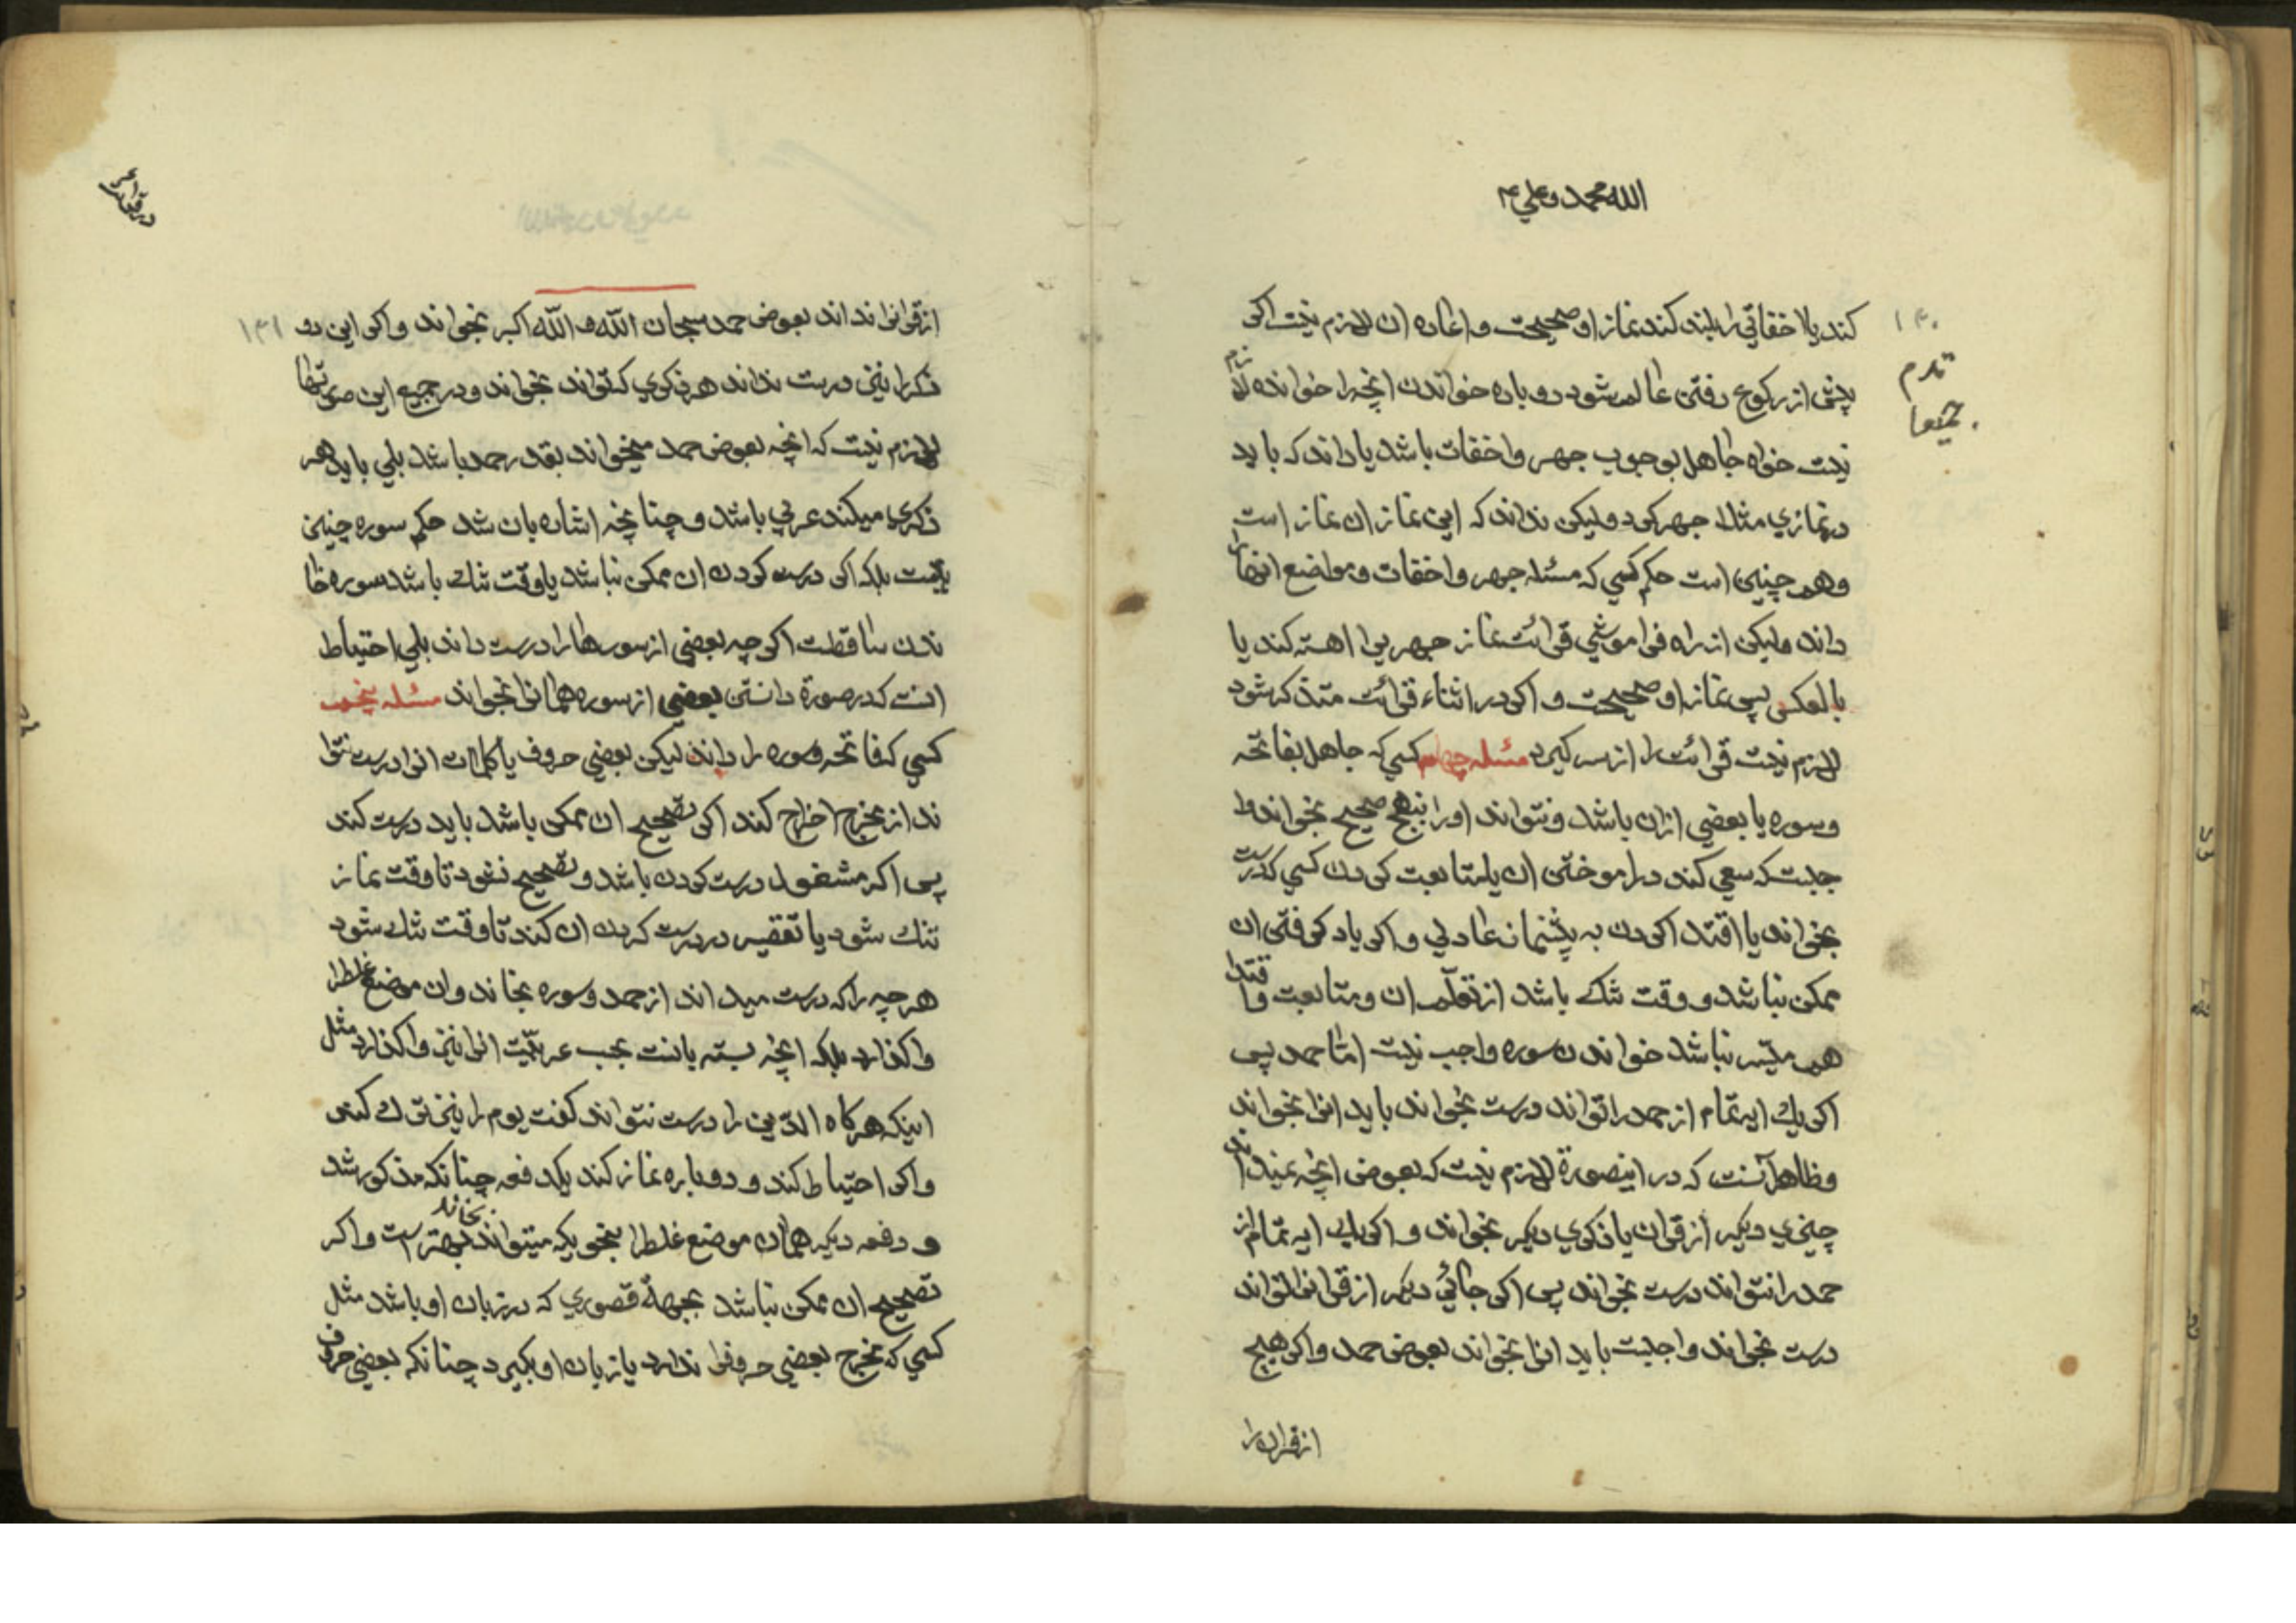 الله محمد و علي ۴
۱۴۰
کند یا اخفاتی را بلند کند نماز او صحیحست و اعاده ان لازم نیست اکر
پیش از رکوع رفتن عالم شود دوباره خواندن انچه را خوانده لازم
نیست خواه جاهل بوجوب جهر و اخفات باشد یا داند که باید
در نمازي مثلا جهر کرد و لیکن نداند که این نماز ان نماز است
و همچنین است حکم کسي که مسئله جهر و اخفات و مواضع انها را
داند ولیکن از راه فراموشي قرائت نماز جهریرا اهسته کند یا
بالعکس پس نماز او صحیحست و اکر در اثناء قرائت متذکر شود
لازم نیست قرائت را از سر کیرد مسئله چهارم کسي که جاهل بفاتحه
و سوره یا بعضي ازان باشد و نتواند او را بنهج صحیح بخواند وا
جبست که سعي کند در اموختن ان یا متابعت کردن کسي که درست
بخواند یا اقتدا کردن به پیشنماز عادلي و اکر یاد کرفتن ان
ممکن نباشد و وقت تنك باشد از تعلّم ان و متابعت و اقتدا
هم میسّر نباشد خواندن سوره واجب نیست امّا حمد پس
اکر یك ایه تمام از حمد را تواند درست بخواند باید انرا بخواند
و ظاهر آنست که در اینصورة لازم نیست که بعوض انچه نمیداند
چیزي دیکر از قران یا ذکري دیکر بخواند و اکر یك ایه تمام از
حمد را نتواند درست بخواند پس اکر جائي دیکر از قرانرا تواند
درست بخواند واجبست باید انرا بخواند بعوض حمد و اکر هیچ
از قران را
۱۴۱
از قرانرا نداند بعوض حمد سبحان اللّه و اللّه اکبر بخواند و اکر این دو
ذکر را نیز درست نداند هر ذکري که تواند بخواند و در جمیع این صورتها
لازم نیست که انچه بعوض حمد میخواند بقدر حمد باشد بلي باید هر
ذکري میکند عربي باشد و چنانچه اشاره بان شد حکم سوره چنین
نیست بلکه اکر درست کردن ان ممکن نباشد یا وقت تنك باشد سوره خوا
ندن ساقطست اکر چه بعضي از سورها را درست داند بلي احتیاط
انست که در صورة دانستن بعضي از سوره همانرا بخواند مسئله پنجم
کسي که فاتحه و سوره را داند لیکن بعضي حروف یا کلمات انرا درست نتوا
ند از مخرج اخراج کند اکر تصحیح ان ممکن باشد باید درست کند
پس اکر مشغول درست کردن باشد و تصحیح نشود تا وقت نماز
تنك شود یا تقصیر در درست کردن ان کند تا وقت تنك شود
هر چه را که درست میداند از حمد و سوره بخاند و ان موضع غلط را
واکذارد بلکه انچه بسته بانست بحسب عربیّت انرا نیز واکذارد مثل
اینکه هرکاه الدّین را درست نتواند کفت یوم را نیز ترك کند
و اکر احتیاط کند و دوباره نماز کند یکدفعه چنانکه مذکور شد
و دفعه دیکر همان موضع غلط را بنحویکه میتواند بخاند بهتر است و اکر
تصحیح ان ممکن نباشد بجهة قصوري که در زبان او باشد مثل
کسي که مخرج بعضي حروفرا ندارد یا زبان او بکیرد چنانکه بعضي حروف